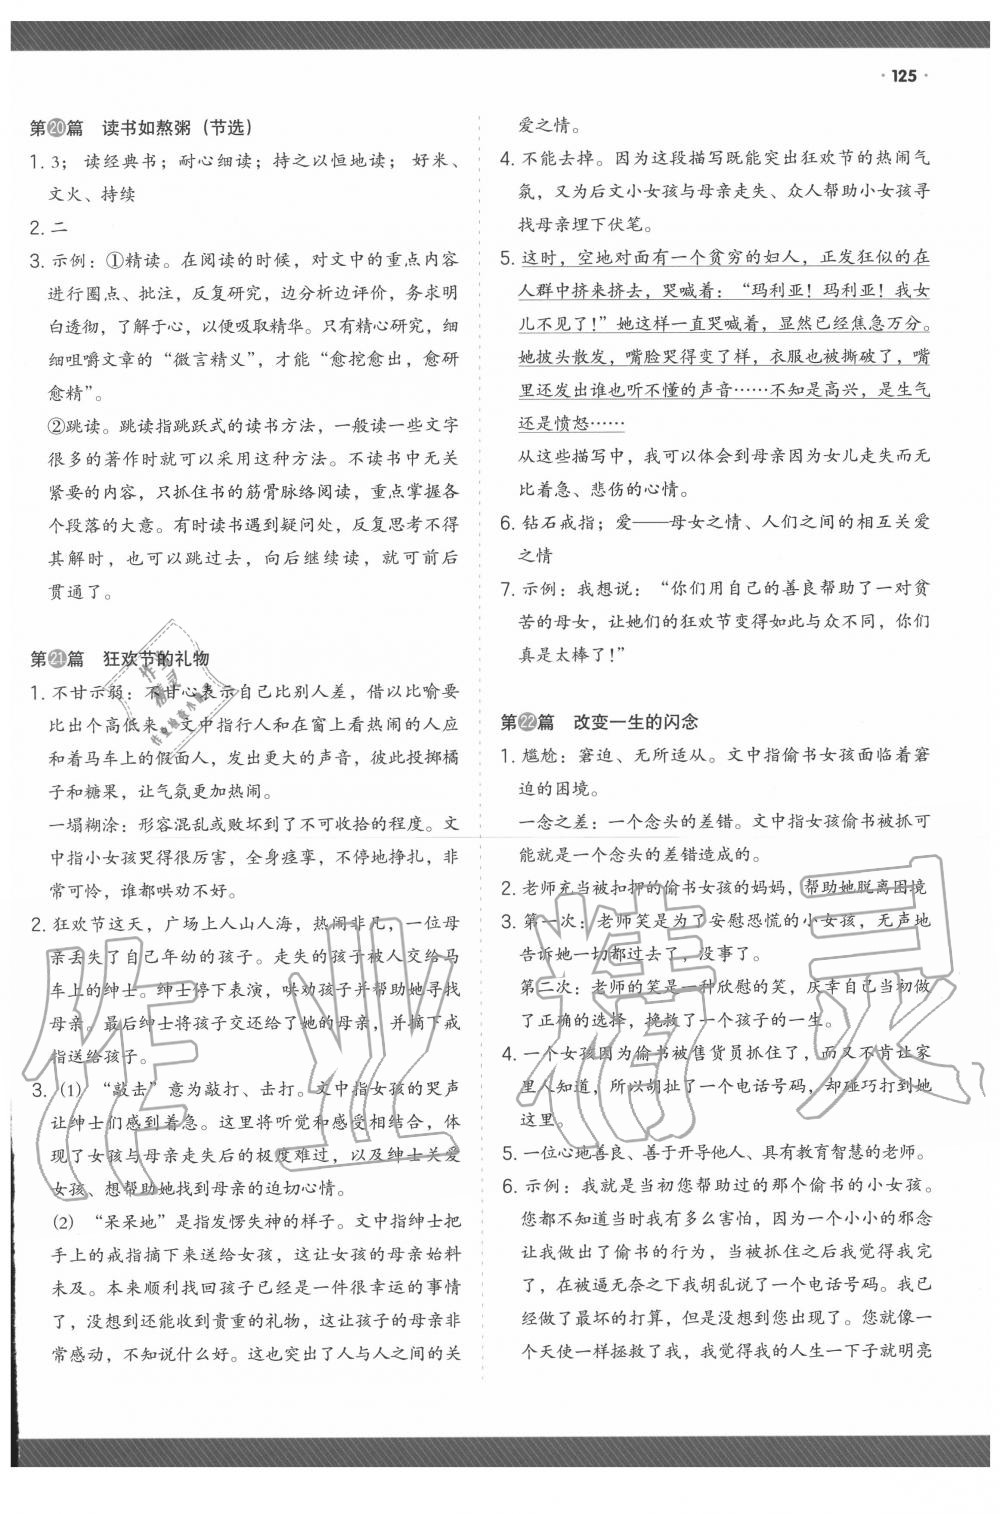 · 125 ·
第20篇 读书如熬粥（节选）
1. 3； 读经典书；耐心细读；持之以恒地读； 好米、
文火、持续
2. 二
3. 示例：①精读。在阅读的时候，对文中的重点内容
进行圈点、批注，反复研究，边分析边评价，务求明
白透彻，了解于心，以便吸取精华。只有精心研究，细
细咀嚼文章的“微言精义”，才能“愈挖愈出，愈研
愈精”。
②跳读。跳读指跳跃式的读书方法，一般读一些文字
很多的著作时就可以采用这种方法。不读书中无关
紧要的内容，只抓住书的筋骨脉络阅读，重点掌握各
个段落的大意。有时读书遇到疑问处，反复思考不得
其解时，也可以跳过去，向后继续读，就可前后
贯通了。
第21篇 狂欢节的礼物
1. 不甘示弱：不甘心表示自己比别人差，借以比喻要
比出个高低来。文中指行人和在窗上看热闹的人应
和着马车上的假面人，发出更大的声音，彼此投掷橘
子和糖果，让气氛更加热闹。
一塌糊涂：形容混乱或败坏到了不可收拾的程度。文
中指小女孩哭得很厉害，全身痉挛，不停地挣扎，非
常可怜，谁都哄劝不好。
2. 狂欢节这天，广场上人山人海，热闹非凡，一位母
亲丢失了自己年幼的孩子。走失的孩子被人交给马
车上的绅士。绅士停下表演，哄劝孩子并帮助她寻找
母亲。最后绅士将孩子交还给了她的母亲，并摘下戒
指送给孩子。
3. (1) “敲击”意为敲打、击打。文中指女孩的哭声
让绅士们感到着急。这里将听觉和感受相结合，体
现了女孩与母亲走失后的极度难过，以及绅士关爱
女孩、想帮助她找到母亲的迫切心情。
(2) “呆呆地”是指发愣失神的样子。文中指绅士把
手上的戒指摘下来送给女孩，这让女孩的母亲始料
未及。本来顺利找回孩子已经是一件很幸运的事情
了，没想到还能收到贵重的礼物，这让孩子的母亲非
常感动，不知说什么好。这也突出了人与人之间的关
爱之情。
4. 不能去掉。因为这段描写既能突出狂欢节的热闹气
氛，又为后文小女孩与母亲走失、众人帮助小女孩寻
找母亲埋下伏笔。
5. 这时，空地对面有一个贫穷的妇人，正发狂似的在
人群中挤来挤去，哭喊着：“玛利亚！玛利亚！我女
儿不见了！”她这样一直哭喊着，显然已经焦急万分。
她披头散发，嘴脸哭得变了样，衣服也被撕破了，嘴
里还发出谁也听不懂的声音……不知是高兴，是生气
还是愤怒……
从这些描写中，我可以体会到母亲因为女儿走失而无
比着急、悲伤的心情。
6. 钻石戒指；爱——母女之情、人们之间的相互关爱
之情
7. 示例：我想说：“你们用自己的善良帮助了一对贫
苦的母女，让她们的狂欢节变得如此与众不同，你们
真是太棒了！”
第22篇 改变一生的闪念
1. 尴尬：窘迫、无所适从。文中指偷书女孩面临着窘
迫的困境。
一念之差：一个念头的差错。文中指女孩偷书被抓可
能就是一个念头的差错造成的。
2. 老师充当被扣押的偷书女孩的妈妈，帮助她脱离困境
3. 第一次：老师笑是为了安慰恐慌的小女孩，无声地
告诉她一切都过去了，没事了。
第二次：老师的笑是一种欣慰的笑，庆幸自己当初做
了正确的选择，挽救了一个孩子的一生。
4. 一个女孩因为偷书被售货员抓住了，而又不肯让家
里人知道，所以胡扯了一个电话号码，却碰巧打到她
这里。
5. 一位心地善良、善于开导他人、具有教育智慧的老师。
6. 示例：我就是当初您帮助过的那个偷书的小女孩。
您都不知道当时我有多么害怕，因为一个小小的邪念
让我做出了偷书的行为，当被抓住之后我觉得我完
了，在被逼无奈之下我胡乱说了一个电话号码。我已
经做了最坏的打算，但是没想到您出现了。您就像一
个天使一样拯救了我，我觉得我的人生一下子就明亮
作业精灵